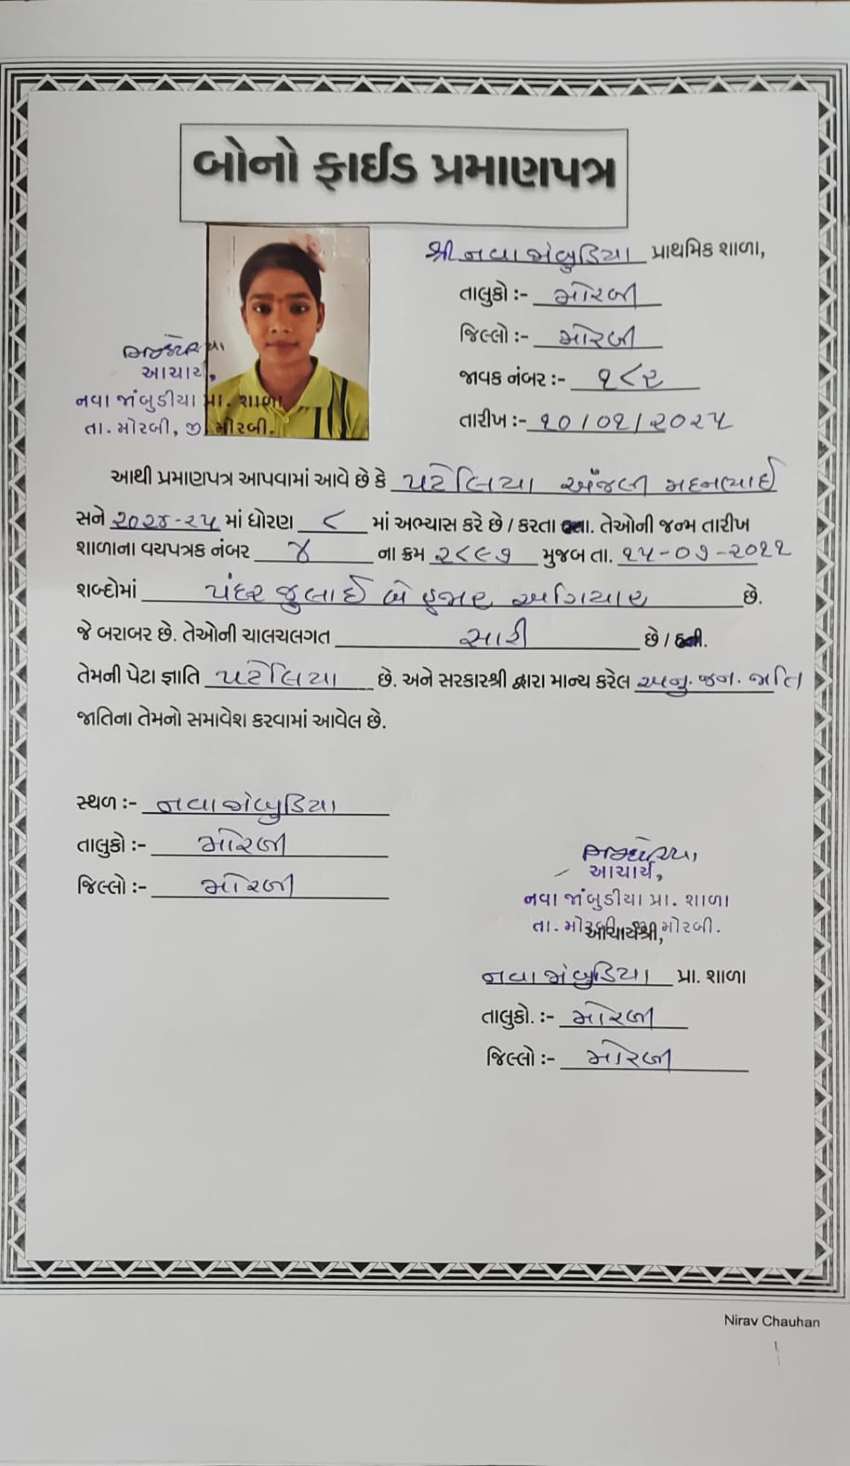 બોનો ફાઈડ પ્રમાણપત્ર
શ્રી નવાજાંબુડિયા પ્રાથમિક શાળા,
તાલુકો :- મોરબી
જિલ્લો :- મોરબી
જાવક નંબર :- ૧૮૨
તારીખ :- ૧૦/૦૧/૨૦૨૫
આચાર્ય,
નવા જાંબુડીયા પ્રા. શાળા
તા. મોરબી, જી મોરબી.
આથી પ્રમાણપત્ર આપવામાં આવે છે કે પટેલિયા અંજલી મદનભાઈ
સને ૨૦૨૪-૨૫ માં ધોરણ ૮ માં અભ્યાસ કરે છે / કરતા હતા. તેઓની જન્મ તારીખ
શાળાના વયપત્રક નંબર ૪ ના ક્રમ ૨૮૯૭ મુજબ તા. ૧૫-૦૭-૨૦૧૧
શબ્દોમાં પંદર જુલાઈ બે હજાર અગિયાર છે.
જે બરાબર છે. તેઓની ચાલચલગત સારી છે / હતી.
તેમની પેટા જ્ઞાતિ પટેલિયા છે. અને સરકારશ્રી દ્વારા માન્ય કરેલ અનુ. જન. જાતિ
જાતિના તેમનો સમાવેશ કરવામાં આવેલ છે.
સ્થળ :- નવાજાંબુડિયા
તાલુકો :- મોરબી
જિલ્લો :- મોરબી
આચાર્ય,
નવા જાંબુડીયા પ્રા. શાળા
તા. મોરબી, જી મોરબી.
આચાર્યશ્રી,
નવાજાંબુડિયા પ્રા. શાળા
તાલુકો. :- મોરબી
જિલ્લો :- મોરબી
Nirav Chauhan